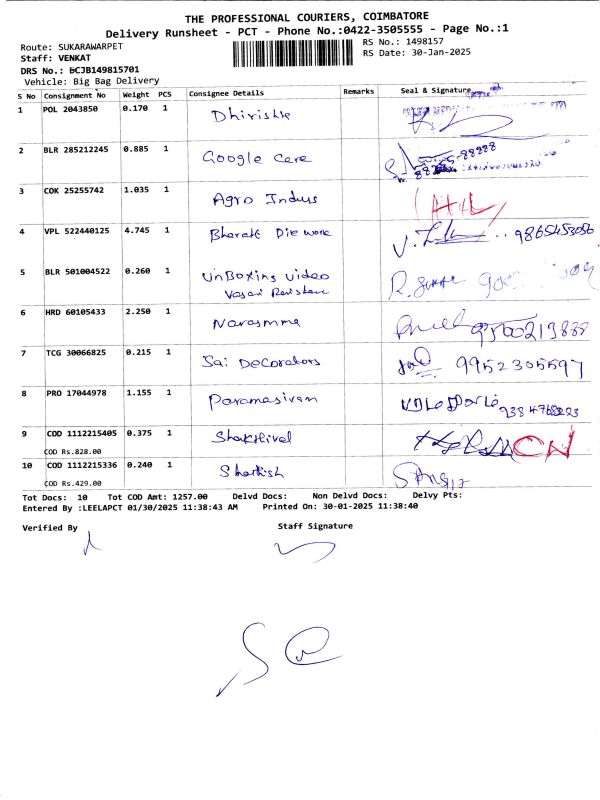 THE PROFESSIONAL COURIERS, COIMBATORE
Delivery Runsheet - PCT - Phone No.:0422-3505555 - Page No.:1
Route: SUKARAWARPET
RS No.: 1498157
Staff: VENKAT
RS Date: 30-Jan-2025
DRS No.: BCJB149815701
Vehicle: Big Bag Delivery
S No Consignment No Weight PCS Consignee Details Remarks Seal & Signature
1 POL 2043850 0.170 1 Dhirishk
2 BLR 285212245 0.885 1 Google Care
3 COK 25255742 1.035 1 Agro Indus
4 VPL 522440125 4.745 1 Bharath Die work
5 BLR 501004522 0.260 1 UnBoxing video
Vasan
6 HRD 60105433 2.250 1 Narasmma 9500213838
7 TCG 30066825 0.215 1 Sai Decorators 9952305597
8 PRO 17044978 1.155 1 Paramasivan
9 COD 1112215405 0.375 1 Shakthivel CN
COD Rs.828.00
10 COD 1112215336 0.240 1
COD Rs.429.00
Tot Docs: 10 Tot COD Amt: 1257.00 Delvd Docs: Non Delvd Docs: Delvy Pts:
Entered By :LEELAPCT 01/30/2025 11:38:43 AM Printed On: 30-01-2025 11:38:40
Verified By Staff Signature